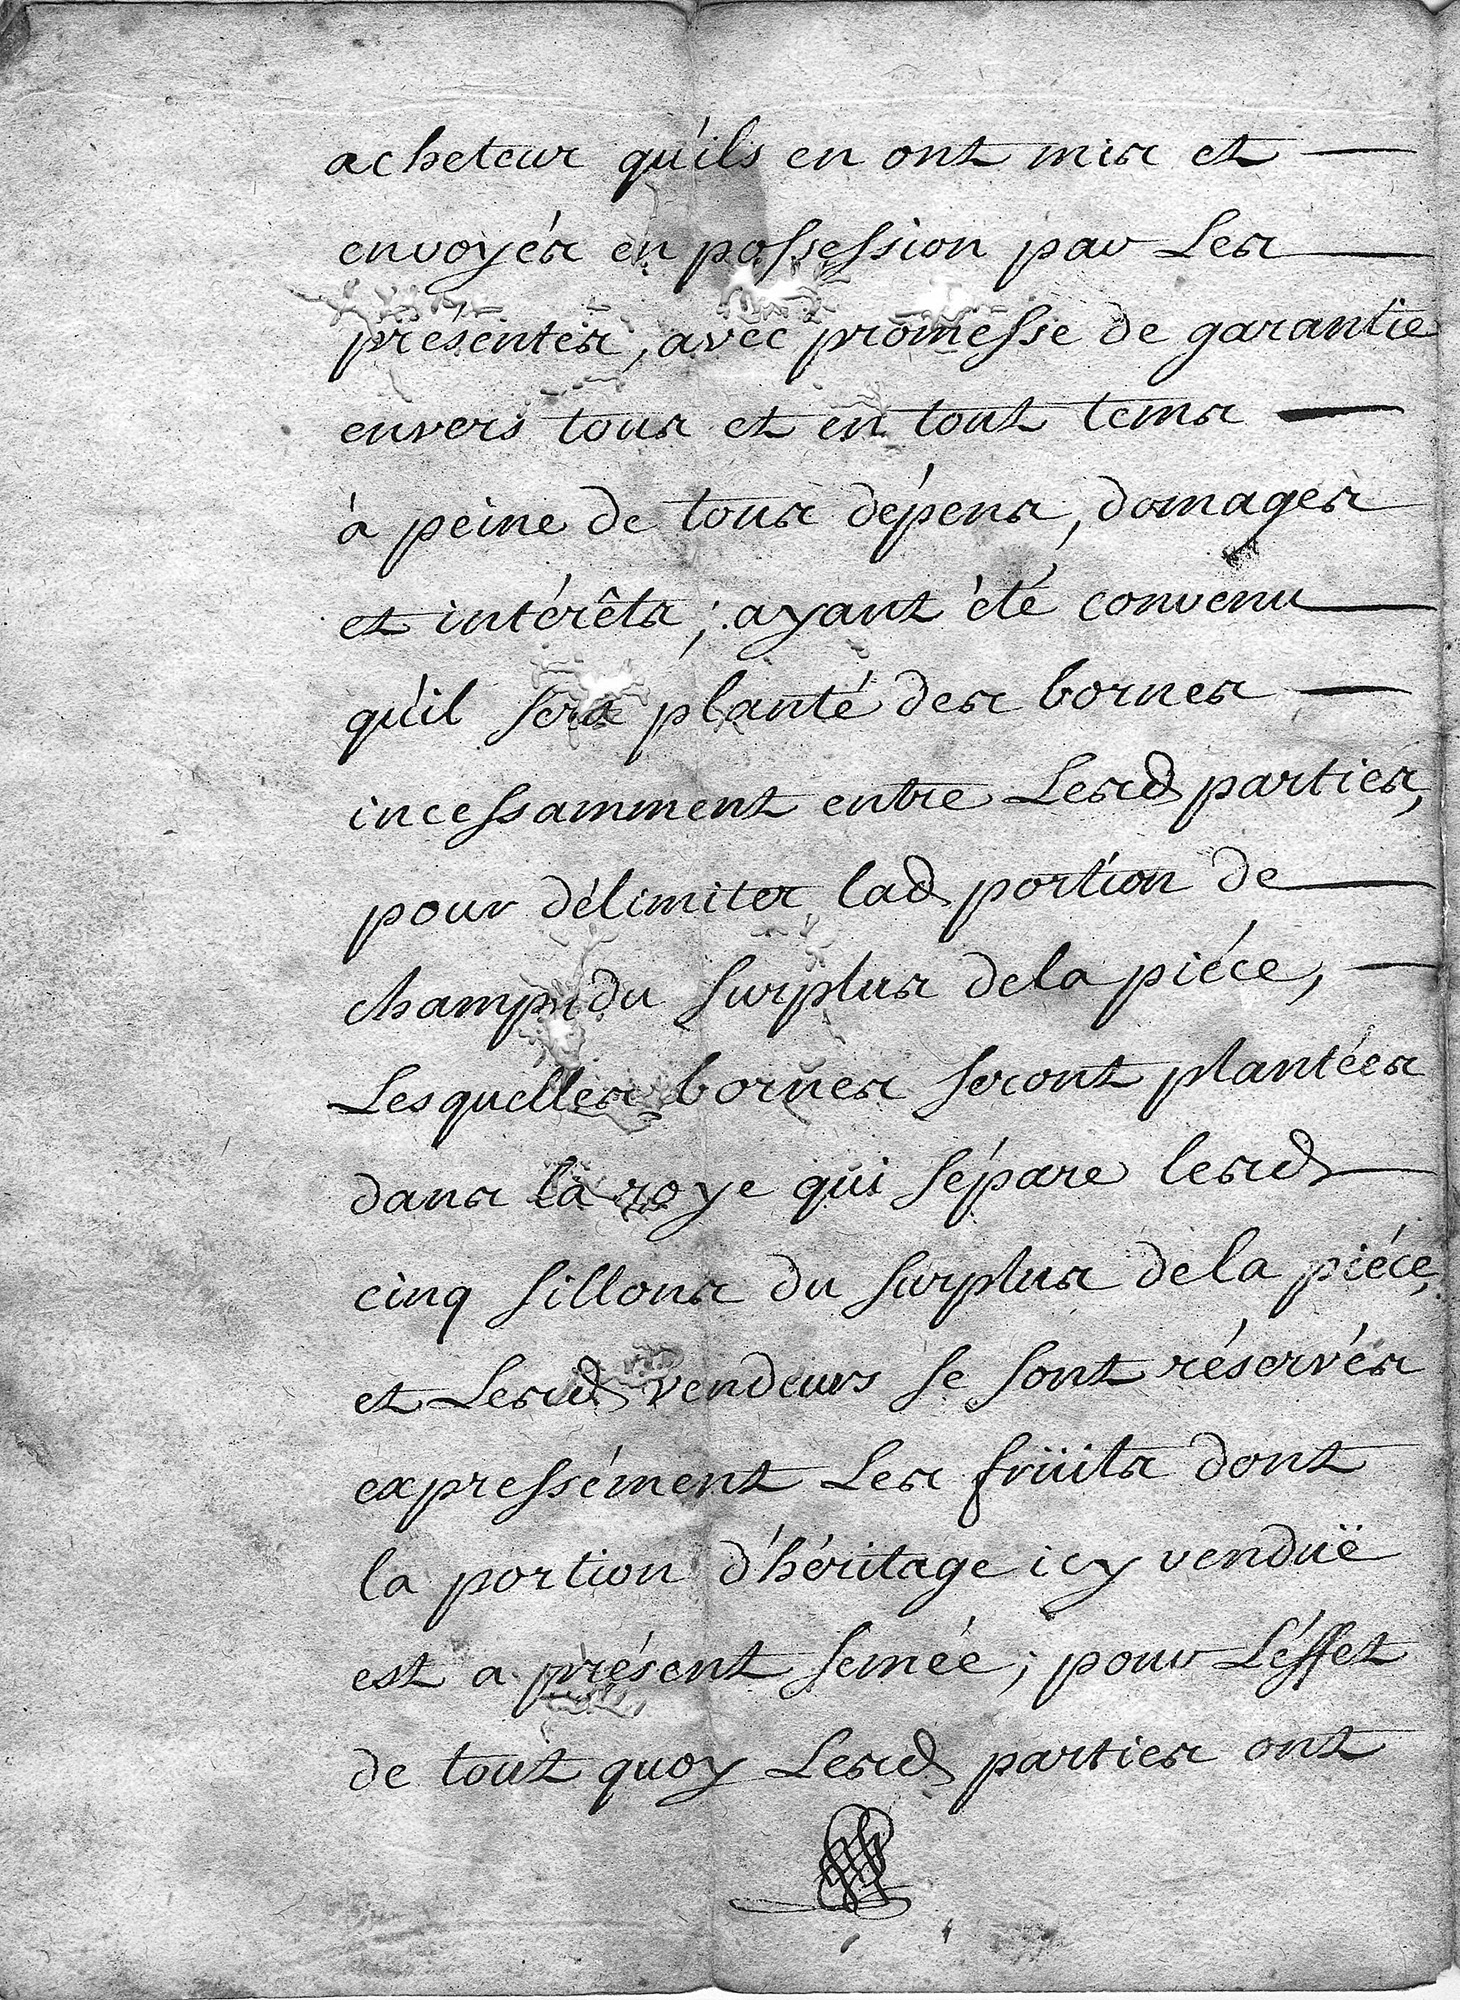 acheteur qu'ils en ont mis et —
envoyés en possession par Les —
présentes, avec promesse de garantie
envers tous et en tout tems —
à peine de tous dépens, domages
et intérêts; ayant été convenu —
qu'il sera planté des bornes —
incessamment entre Lesd parties,
pour délimiter lad portion de —
champ du surplus dela piéce, —
Lesquelles bornes seront plantées
dans la roye qui sépare lesd —
cinq sillons du surplus dela piéce,
et Lesd vendeurs se sont réservés
expressément Les früits dont
la portion d'héritage icy venduë
est a présent semée; pour L'éffet
de tout quoy Lesd parties ont